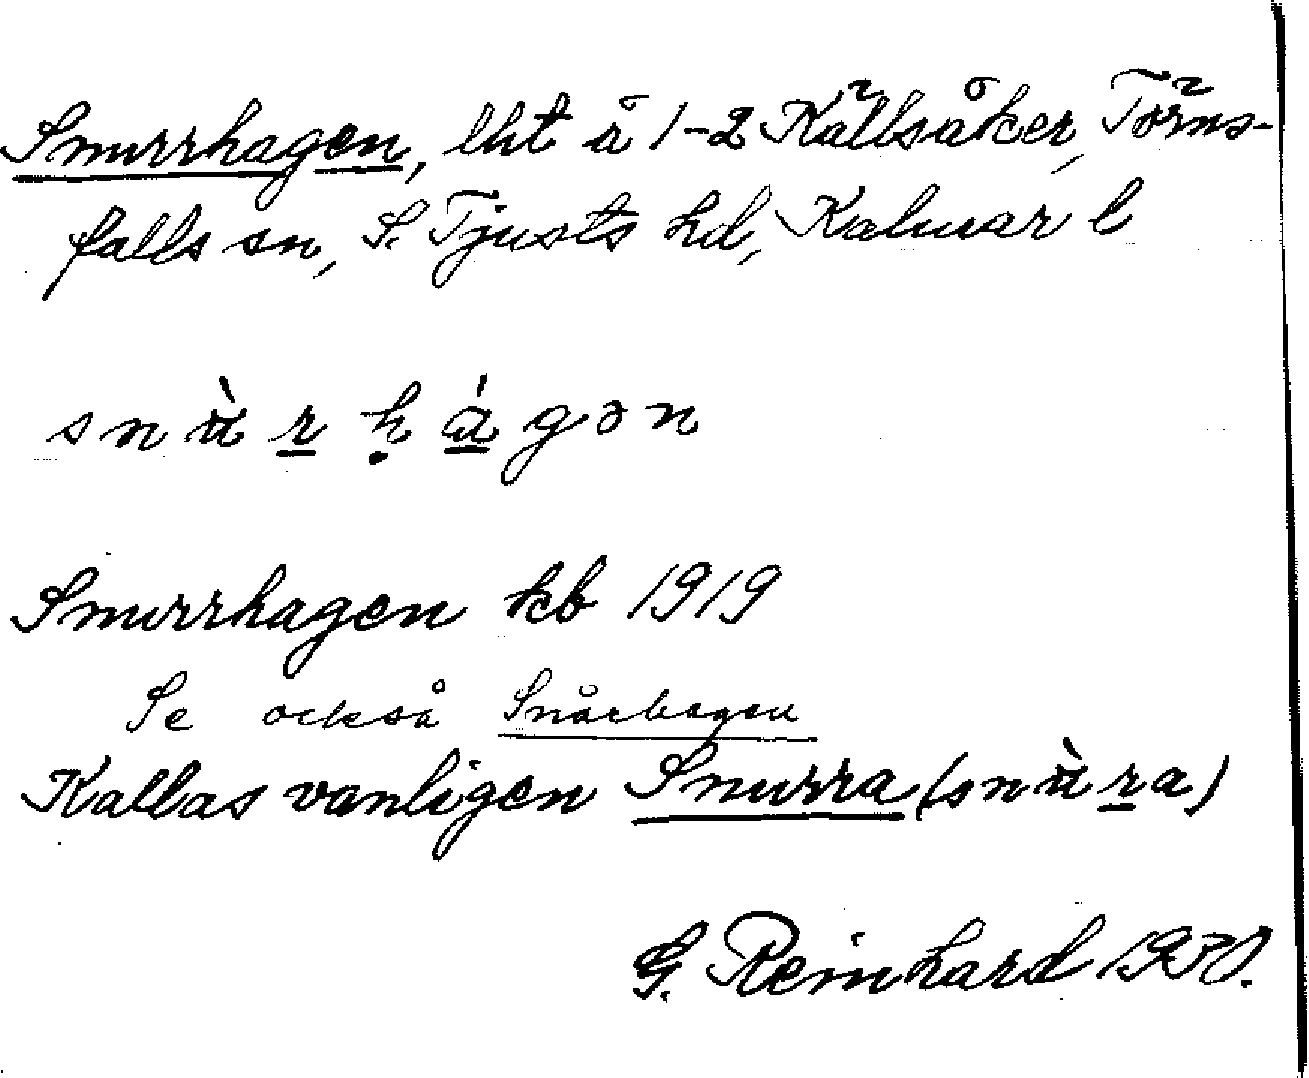 Snurrhagen, lht å 1-2 Källsåker, Törns-
falls sn, S. Tjusts hd, Kalmar l
snùrhágən
Snurrhagen kb 1919
Se också Snårhagen
Kallas vanligen Snurra (snùra)
G. Reinhard 1930.